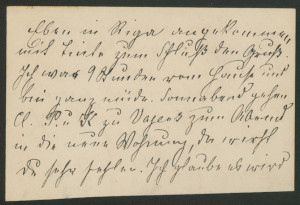 Eben in Riga angekommen
mit Liebe zum Schluß den Gruß.
Ich war 9 Stunden vom Hause und
bin ganz müde. Sonnabend gehen
zu zum Abend
in die neue Wohnung, da wirst
Du sehr fehlen. Ich glaube es wird